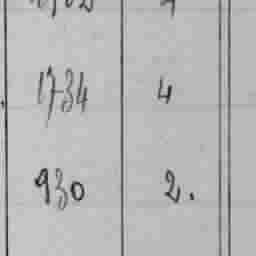 1734 4
930 2.